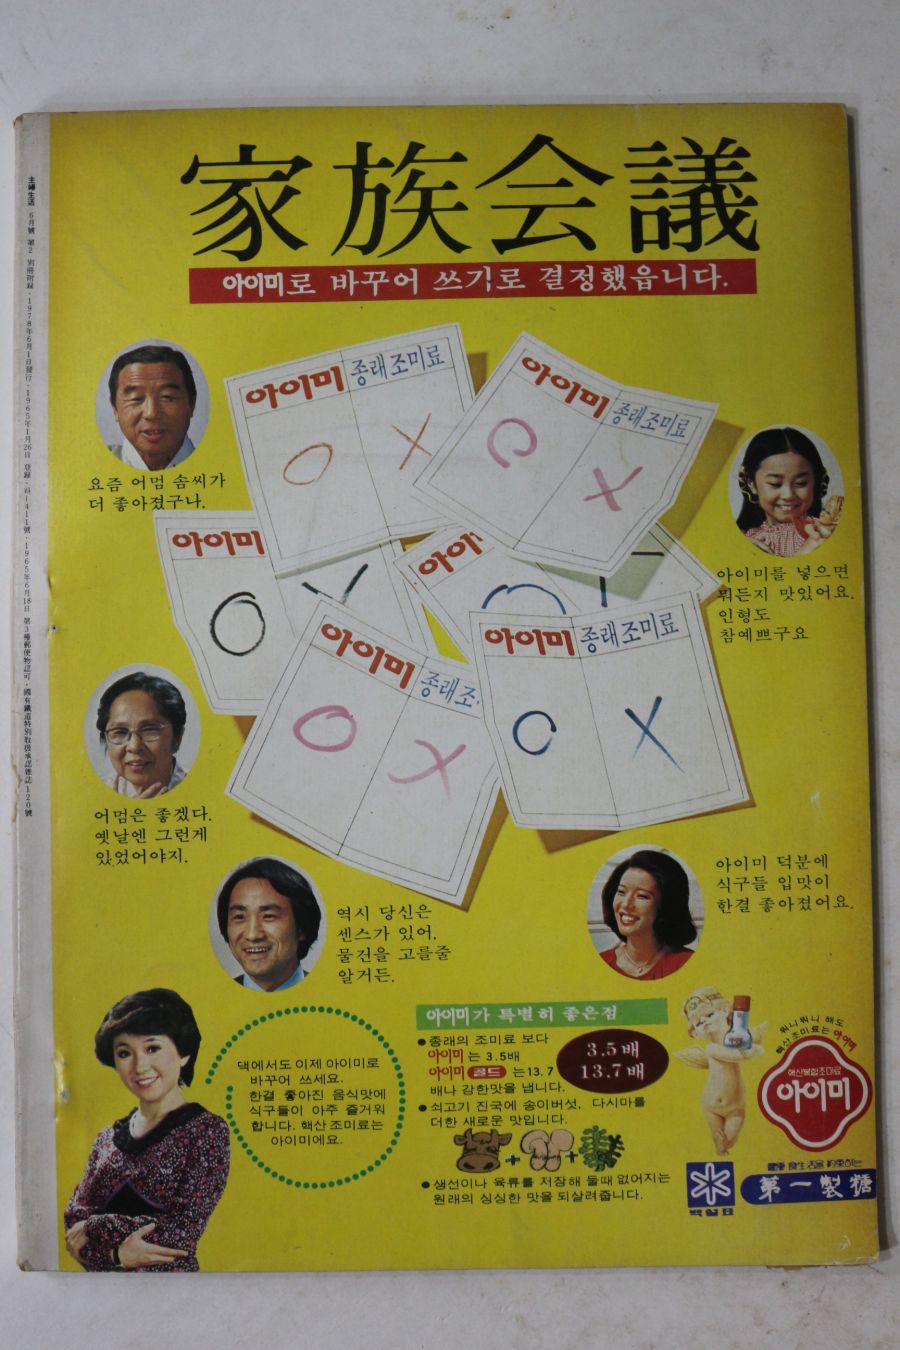 家族会議
아이미로 바꾸어 쓰기로 결정했읍니다.
主婦生活 6月號 第2 別冊附録·1978年6月1日發行·1965年1月26日 登録·라-411號·1965年6月18日 第3種郵便物認可·國有鐵道特別取扱承認雜誌120號
아이미 종래조미료
O X
아이미 종래조미료
O X
아이미
O
아이미
아이미 종래조
O X
아이미 종래조미료
O X
요즘 어멈 솜씨가
더 좋아졌구나.
아이미를 넣으면
뭐든지 맛있어요.
인형도
참예쁘구요
어멈은 좋겠다.
옛날엔 그런게
있었어야지.
역시 당신은
센스가 있어.
물건을 고를줄
알거든.
아이미 덕분에
식구들 입맛이
한결 좋아졌어요.
댁에서도 이제 아이미로
바꾸어 쓰세요.
한결 좋아진 음식맛에
식구들이 아주 즐거워
합니다. 핵산조미료는
아이미예요.
아이미가 특별히 좋은점
●종래의 조미료 보다
아이미는 3.5배
아이미 골드 는13.7
배나 강한맛을 냅니다.
3.5배
13.7배
●쇠고기 진국에 송이버섯, 다시마를
더한 새로운 맛입니다.
+ +
●생선이나 육류를 저장해 둘때 없어지는
원래의 싱싱한 맛을 되살려줍니다.
뭐니뭐니 해도
핵산조미료는 아이미
핵산복합조미료
아이미
백설표
健康 食生活을 約束하는
第一製糖